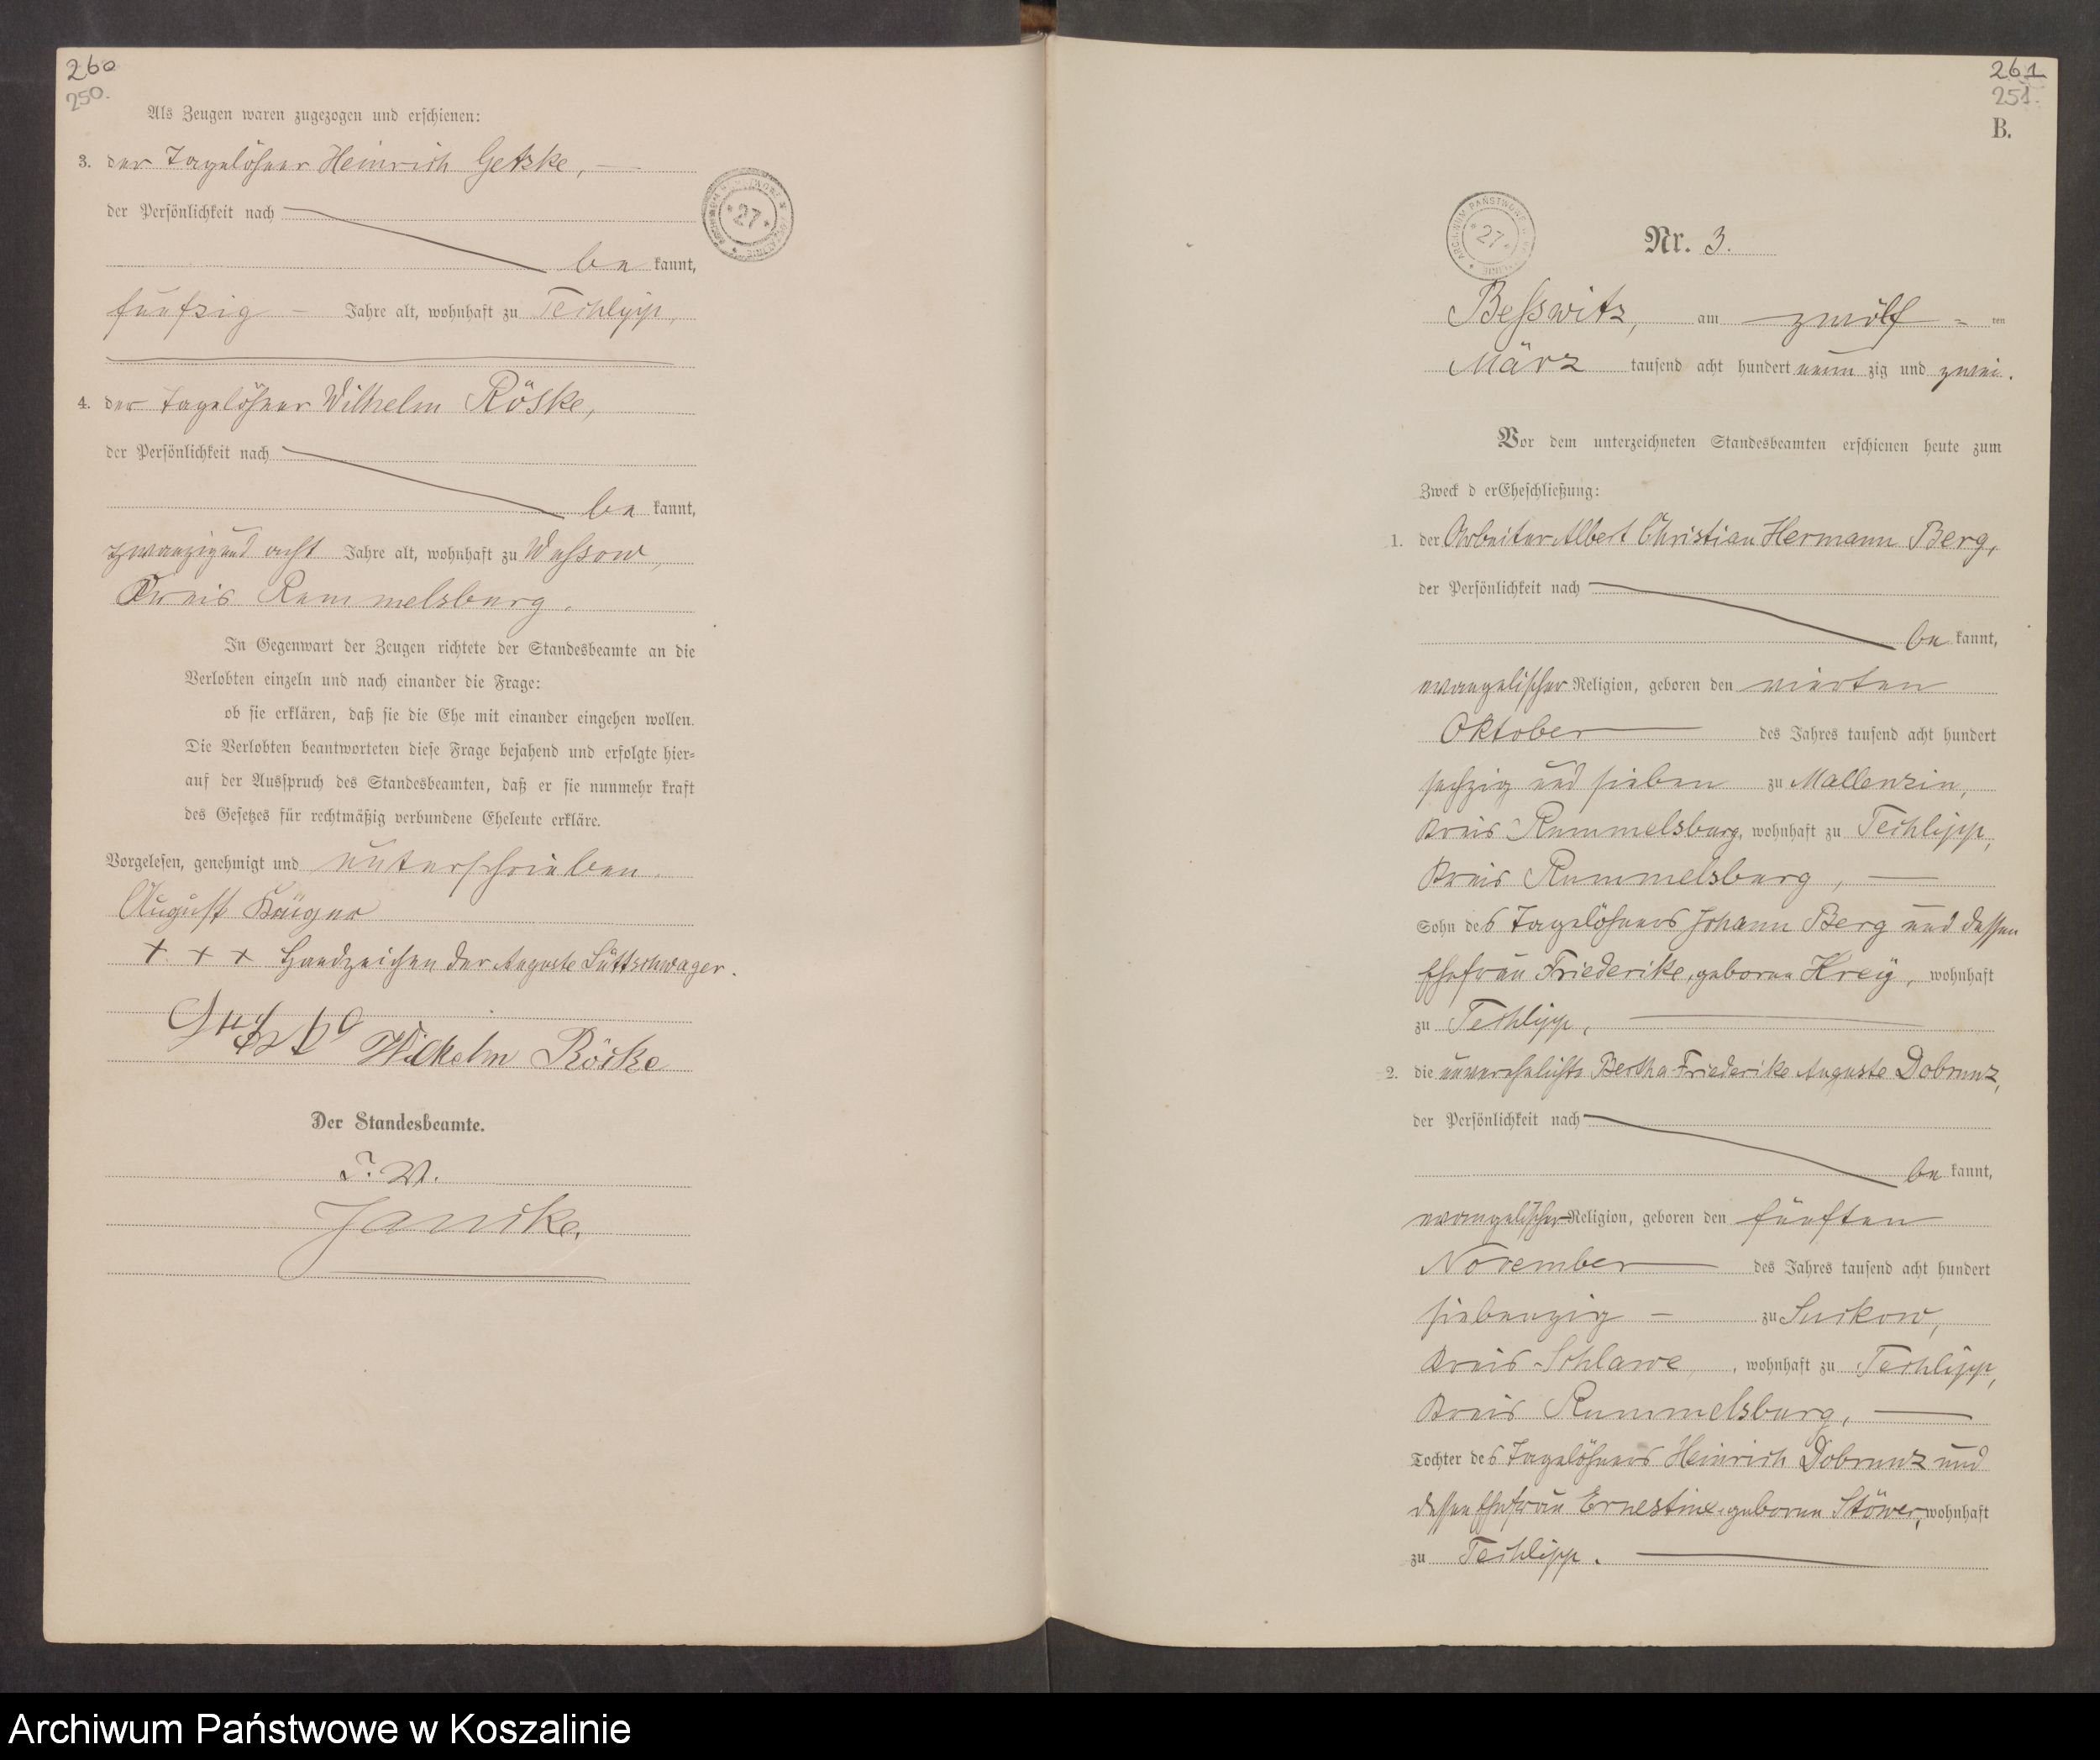 260
250.
Als Zeugen waren zugezogen und erschienen:
3. der Tagelöhner Heinrich Getzke,
der Persönlichkeit nach
be kannt,
fünfzig – Jahre alt, wohnhaft zu Techlipp,
4. der Tagelöhner Wilhelm Röske,
der Persönlichkeit nach
be kannt,
zwanzig und acht Jahre alt, wohnhaft zu Wussow,
Kreis Rummelsburg.
In Gegenwart der Zeugen richtete der Standesbeamte an die
Verlobten einzeln und nach einander die Frage:
ob sie erklären, daß sie die Ehe mit einander eingehen wollen.
Die Verlobten beantworteten diese Frage bejahend und erfolgte hier-
auf der Ausspruch des Standesbeamten, daß er sie nunmehr kraft
des Gesetzes für rechtmäßig verbundene Eheleute erkläre.
Vorgelesen, genehmigt und unterschrieben.
August
+ + + Handzeichen der Auguste Lüttschwager.
Wilhelm Röske
Der Standesbeamte.
J. V.
Janicke.
ARCHIWUM PAŃSTWOWE
* 27 *
261
251.
B.
ARCHIWUM PAŃSTWOWE
* 27 *
Nr. 3.
Beßwitz, am zwölf = ten
März tausend acht hundert neun zig und zwei.
Vor dem unterzeichneten Standesbeamten erschienen heute zum
Zweck d erEheschließung:
1. der Arbeiter Albert Christian Hermann Berg,
der Persönlichkeit nach
be kannt,
evangelischer Religion, geboren den vierten
Oktober des Jahres tausend acht hundert
sechzig und sieben zu Mallenzin,
Kreis Rummelsburg, wohnhaft zu Techlipp,
Kreis Rummelsburg,
Sohn des Tagelöhners Johann Berg und dessen
Ehefrau Friederike, geborene Kreÿ, wohnhaft
zu Techlipp,
2. die unverehelichte Bertha Friederike Auguste Dobrunz,
der Persönlichkeit nach
be kannt,
evangelischer Religion, geboren den fünften
November des Jahres tausend acht hundert
siebenzig – zu Suckow,
Kreis Schlawe, wohnhaft zu Techlipp,
Kreis Rummelsburg,
Tochter des Tagelöhners Heinrich Dobrunz und
dessen Ehefrau Ernestine, geborene Stöwer, wohnhaft
zu Techlipp.
Archiwum Państwowe w Koszalinie